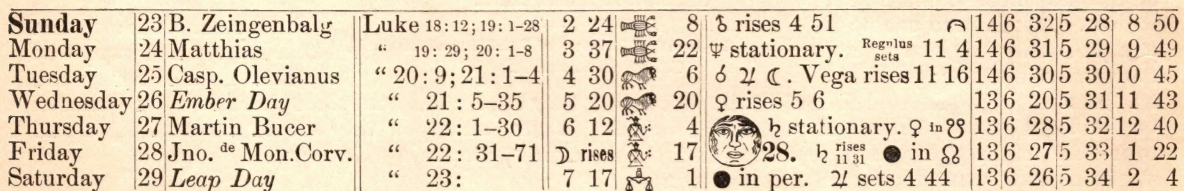 Sunday 23 B. Zeingenbalg Luke 18:12; 19: 1-28 2 24 8 ♁ rises 4 51 14 6 32 5 28 8 50
Monday 24 Matthias “ 19: 29; 20: 1-8 3 37 22 ♆ stationary. Regulus sets 11 4 14 6 31 5 29 9 49
Tuesday 25 Casp. Olevianus “ 20: 9; 21: 1-4 4 30 6 ☌ ♃ ☾. Vega rises 11 16 14 6 30 5 30 10 45
Wednesday 26 Ember Day “ 21: 5-35 5 20 20 ♀ rises 5 6 13 6 20 5 31 11 43
Thursday 27 Martin Bucer “ 22: 1-30 6 12 4 ♄ stationary. ♀ in ☋ 13 6 28 5 32 12 40
Friday 28 Jno. de Mon.Corv. “ 22: 31-71 ☽ rises 17 28. ♄ rises 11 31 ● in ☊ 13 6 27 5 33 1 22
Saturday 29 Leap Day “ 23: 7 17 1 ● in per. ♃ sets 4 44 13 6 26 5 34 2 4